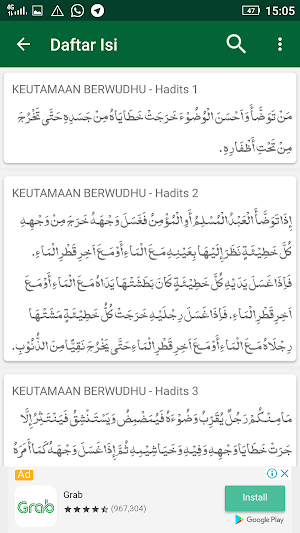 4G
47
15:05
Daftar Isi
KEUTAMAAN BERWUDHU - Hadits 1
مَنْ تَوَضَّأَ وَاَحْسَنَ الْوُضُوْءَ خَرَجَتْ خَطَايَاهُ مِنْ جَسَدِهِ حَتَّى تَخْرُجَ
مِنْ تَحْتِ أَظْفَارِهِ.
KEUTAMAAN BERWUDHU - Hadits 2
إِذَا تَوَضَّأَ الْعَبْدُ الْمُسْلِمُ أَوِالْمُؤْمِنُ فَغَسَلَ وَجْهَهُ خَرَجَ مِنْ وَجْهِهِ
كُلُّ خَطِيْئَةٍ نَظَرَ إِلَيْهَا بِعَيْنِهِ مَعَ الْمَاءِ أَوْ مَعَ اَخِرِ قَطْرِ الْمَاءِ.
فَاِذَا غَسَلَ يَدَيْهِ كُلُّ خَطِيْئَةٍ كَانَ بَطَشَتْهَا يَدَاهُ مَعَ الْمَاءِ اَوْ مَعَ
اَخِرِ قَطْرِ الْمَاءِ. فَاِذَا غَسَلَ رِجْلَيْهِ خَرَجَتْ كُلُّ خَطِيْئَةٍ مَشَتْهَا
رِجْلَاهُ مَعَ الْمَاءِ أَوْ مَعَ اَخِرِ قَطْرِ الْمَاءِ حَتَّى يَخْرُجَ نَقِيًّا مِنَ الذُّنُوْبِ.
KEUTAMAAN BERWUDHU - Hadits 3
مَامِنْكُمْ رَجُلٌ يُقَرِّبُ وَضُوْءَهُ فَيُمَضْمِضُ وَيَسْتَنْشِقُ فَيَنْتَثِرُ إِلَّا
جَرَتْ خَطَايَا وَجْهِهِ وَفِيْهِ وَخَيَاشِيْمِهِ ثُمَّ إِذَا غَسَلَ وَجْهَهُ كَمَا أَمَرَهُ
Ad
Grab
Grab
(967,304)
Install
Google Play